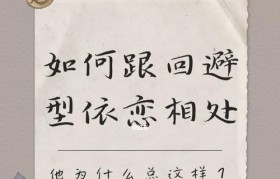 如何跟回避
型依恋相处
他为什么总这样？